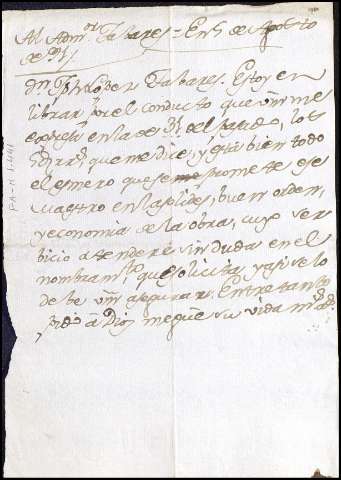 Al Adm.or Tabares = En 5 de Agosto
de
Dn Tabares. Estoy en
librar, por el conducto que Vm me
en la de del pasado, los
que me dice, y está bien todo
el esmero que se promete ese
Maestro en la solides, buen orden,
y economia de la obra, cuyo ser
bicio atendere sin duda en el
nombram.to que solicita, y asi se lo
debe Vm asegurar. Entretanto
pido â Dios me gue su vida m.s a.s
PA-M